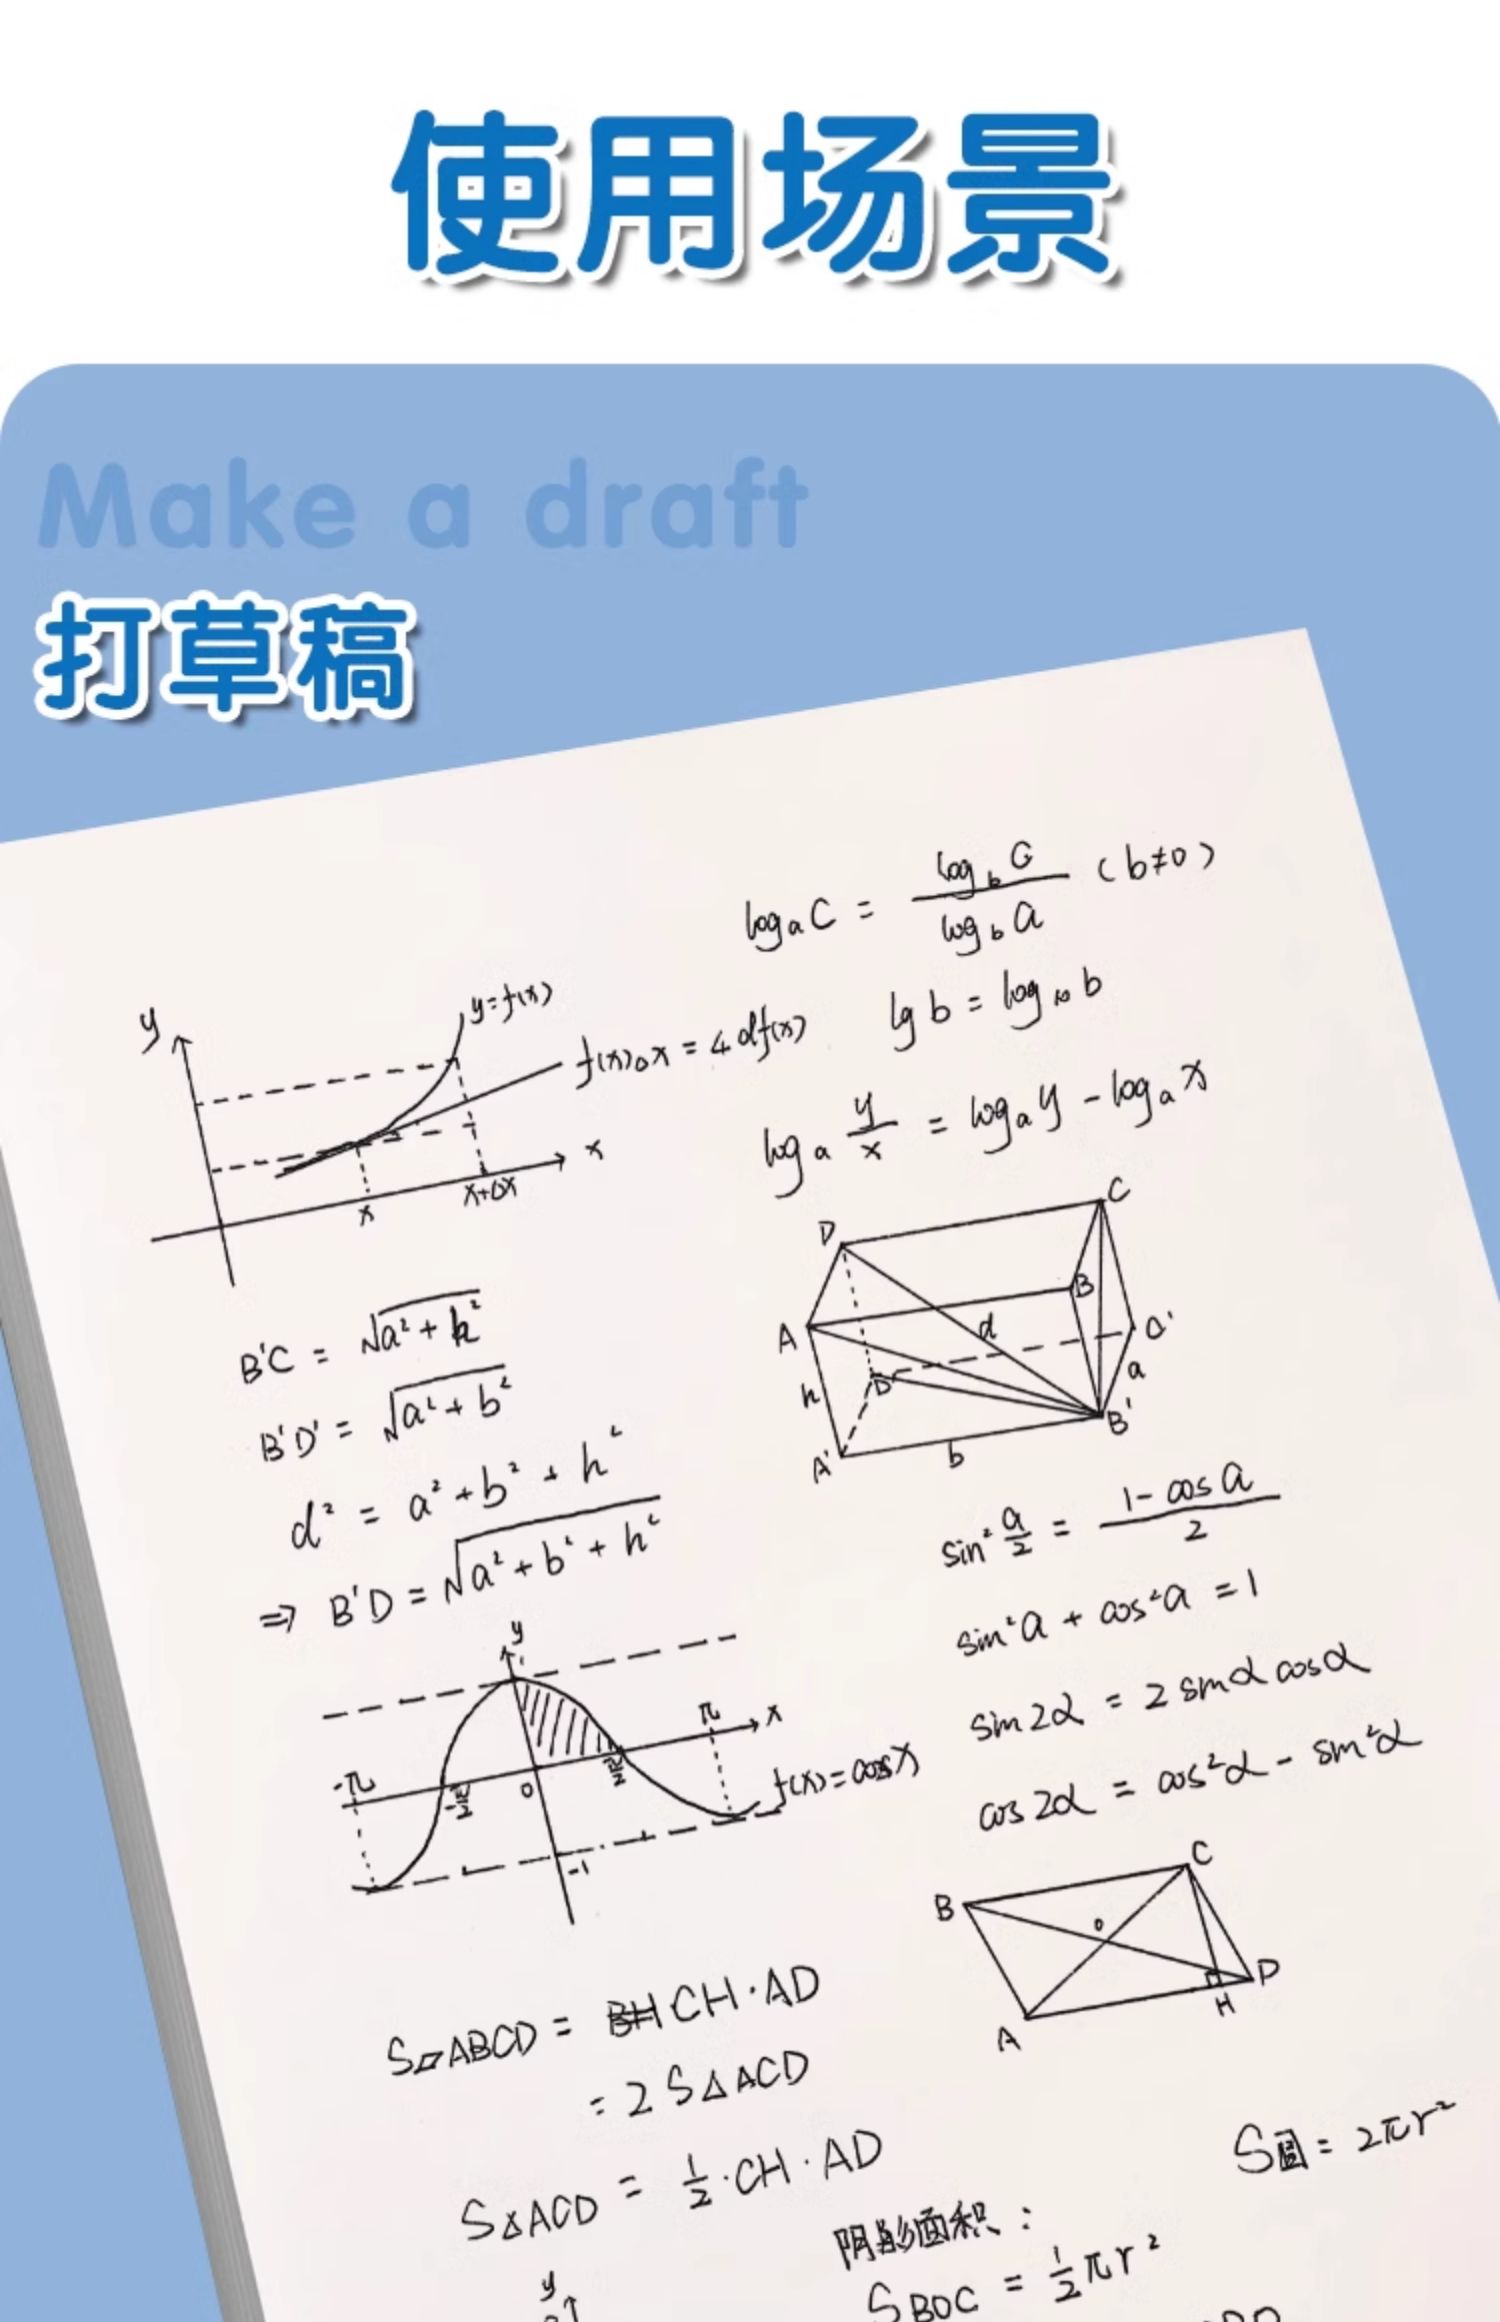 使用场景
Make a draft
打草稿
logₐC = log_b C / log_b a (b≠0)
lg b = log₁₀ b
logₐ y/x = logₐy - logₐx
y
y=f(x)
x
x
x+Δx
B'C = √a²+h²
B'D' = √a²+b²
d² = a²+b²+h²
⇒ B'D = √a²+b²+h²
D
C
A
B
d
C'
h
D'
a
A'
b
B'
sin² a/2 = 1-cos a / 2
sin²a + cos²a = 1
sin2α = 2sinαcosα
cos2α = cos²α - sin²α
y
1
π
x
-π
-π/2
0
π/2
f(x)=cosx
-1
B
C
O
A
H
D
S▱ABCD = BH CH·AD
= 2S△ACD
S△ACD = 1/2·CH·AD
S圆 = 2πr²
阴影面积：
S BOC = 1/2πr²
y